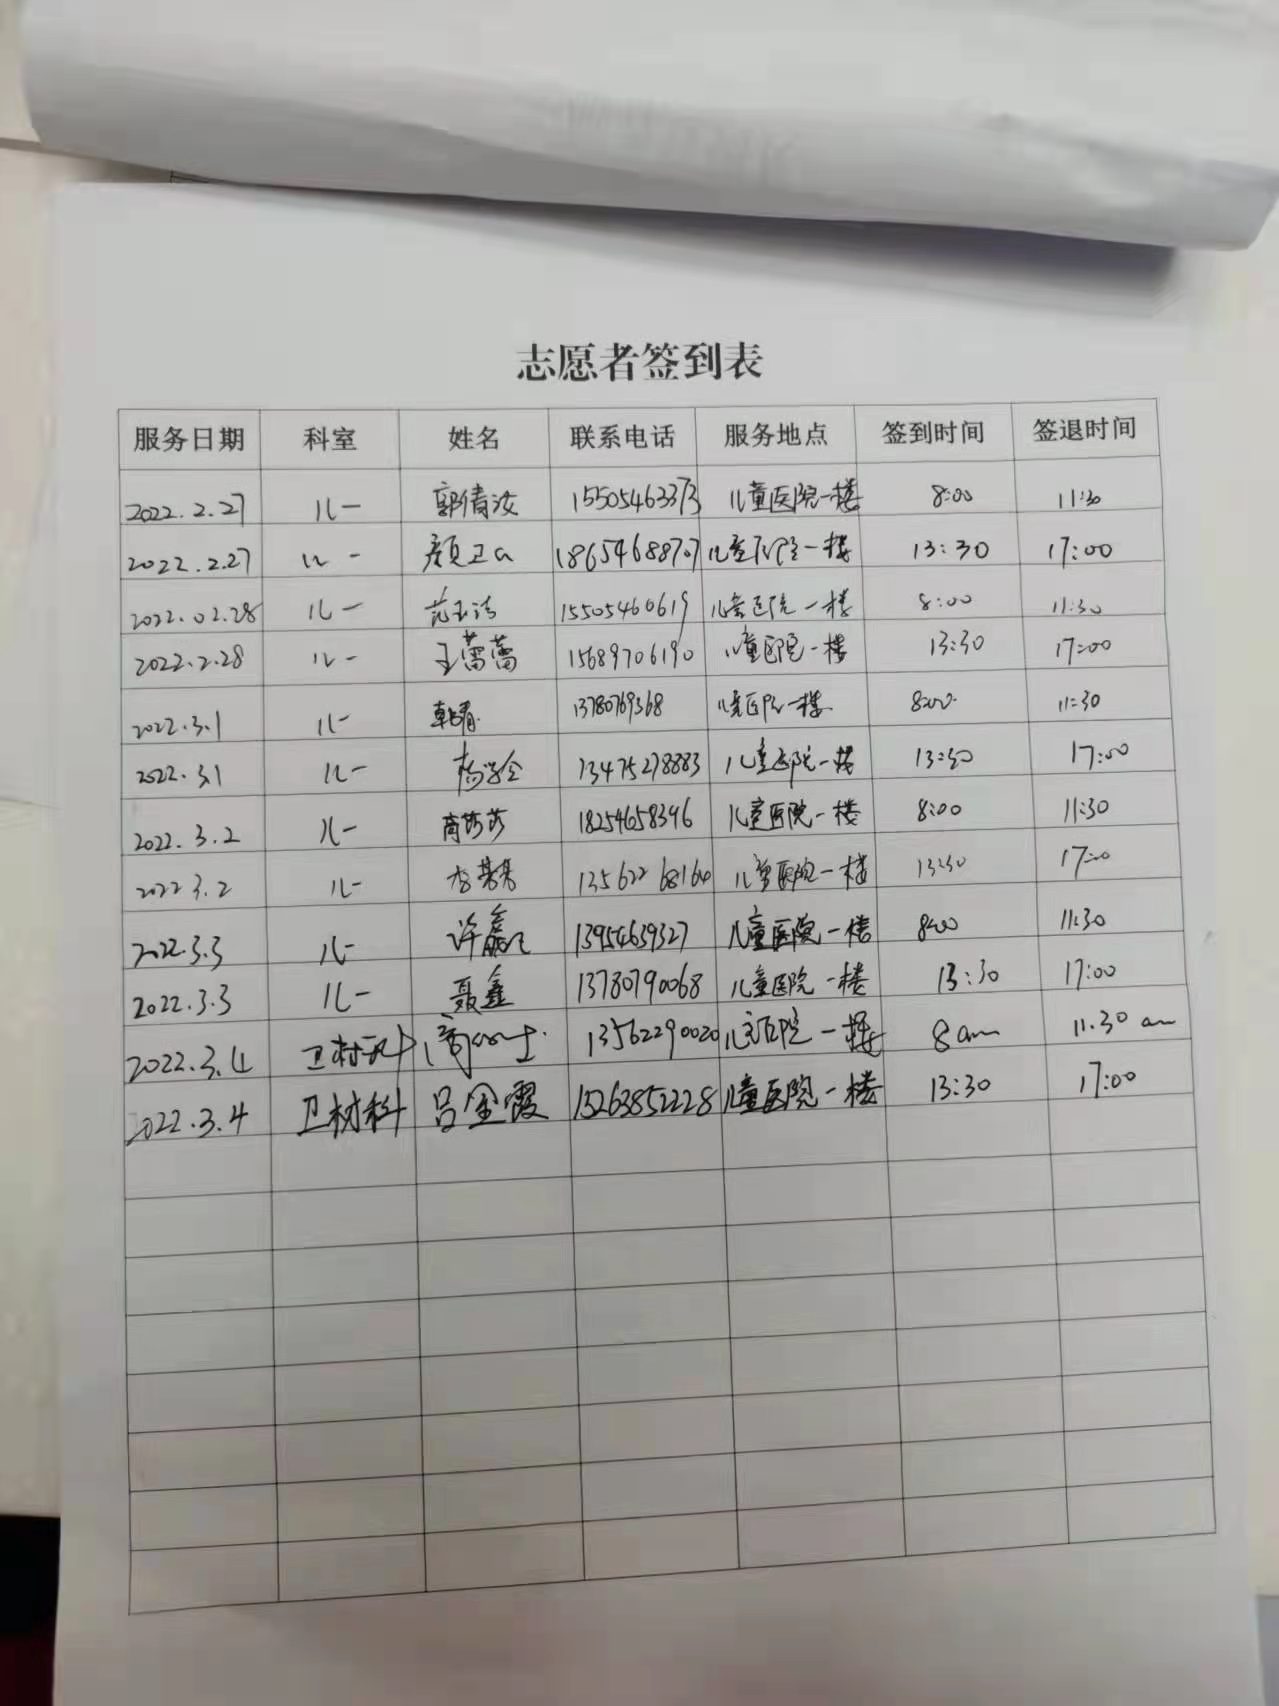 志愿者签到表
服务日期 科室 姓名 联系电话 服务地点 签到时间 签退时间
2022.2.27 儿一 郭倩汝 15505463373 儿童医院一楼 8:00 11:30
2022.2.27 儿一 颜卫 18654688707 儿童医院一楼 13:30 17:00
2022.02.28 儿一 15505460619 儿童医院一楼 8:00 11:30
2022.2.28 儿一 王蕾蕾 15689706190 儿童医院一楼 13:30 17:00
2022.3.1 儿一 韩春 13780769368 儿童医院一楼 8:00 11:30
2022.3.1 儿一 杨学全 13475278883 儿童医院一楼 13:30 17:00
2022.3.2 儿一 商莎莎 18254658396 儿童医院一楼 8:00 11:30
2022.3.2 儿一 13562268164 儿童医院一楼 13:30 17:00
2022.3.3 儿一 许赢 13954659327 儿童医院一楼 8:00 11:30
2022.3.3 儿一 聂鑫 13780790068 儿童医院一楼 13:30 17:00
2022.3.4 卫材科 13562290020 儿童医院一楼 8am 11.30am
2022.3.4 卫材科 吕金霞 15263852228 儿童医院一楼 13:30 17:00